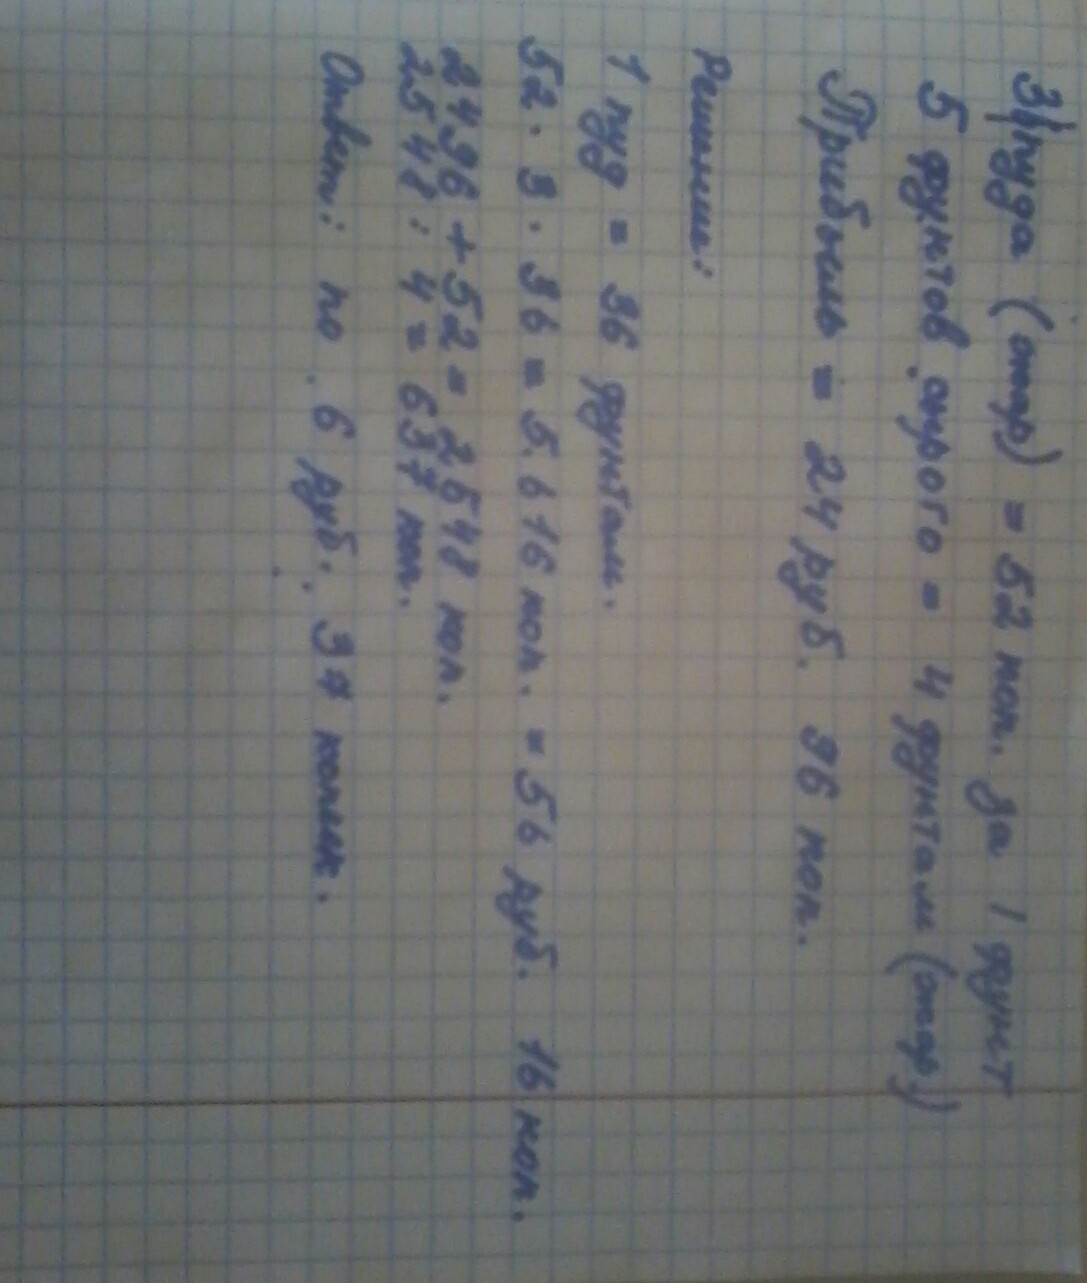 3 пуда (стар) = 52 коп. за 1 фунт
5 фунтов сырого = 4 фунтам (стар)
Прибыль = 24 руб. 96 коп.
Решение:
1 пуд = 36 фунтам.
52 · 3 · 36 = 5.616 коп. = 56 руб. 16 коп.
2496 + 52 = 2548 коп.
2548 : 4 = 637 коп.
Ответ: по 6 руб. 37 копеек.